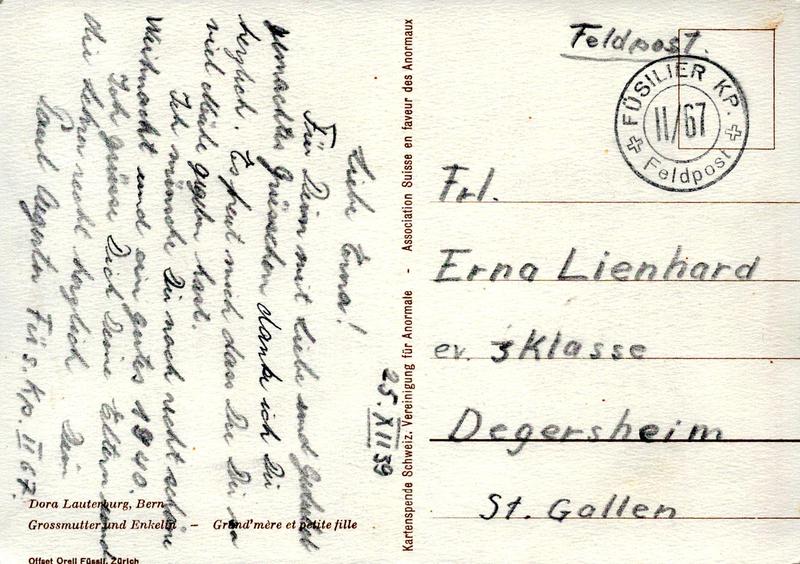 25. XII 39
Liebe Erna!
Für Dein mit Liebe und Geduld
gemachtes Grüsschen danke ich Dir
herzlich. Es freut mich dass Du Dir so
viel Mühe gegeben hast.
Ich wünsche Dir noch recht schöne
Weihnacht und ein gutes 1940.
Ich grüsse Dich Deine Eltern und
die Lehrer recht herzlich Dein
Paul Aegerter Füs. Kp. II 67.
Dora Lauterburg, Bern
Grossmutter und Enkelin – Grand'mère et petite fille
Offset Orell Füssli, Zürich
Kartenspende Schweiz. Vereinigung für Anormale - Association Suisse en faveur des Anormaux
Feldpost.
FÜSILIER KP.
II/67
Feldpost
Frl.
Erna Lienhard
ev. 3 Klasse
Degersheim
St. Gallen